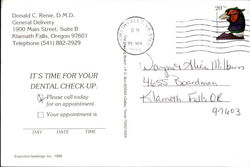 Donald C. Renie, D.M.D.
General Delivery
1900 Main Street, Suite B
Klamath Falls, Oregon 97601
Telephone (541) 882-2929
IT'S TIME FOR YOUR
DENTAL CHECK-UP.
Please call today
for an appointment.
Your appointment is
DAY DATE TIME
29
Wayne & Alice Milburn
4655 Boardman
Klamath Falls OR
97603